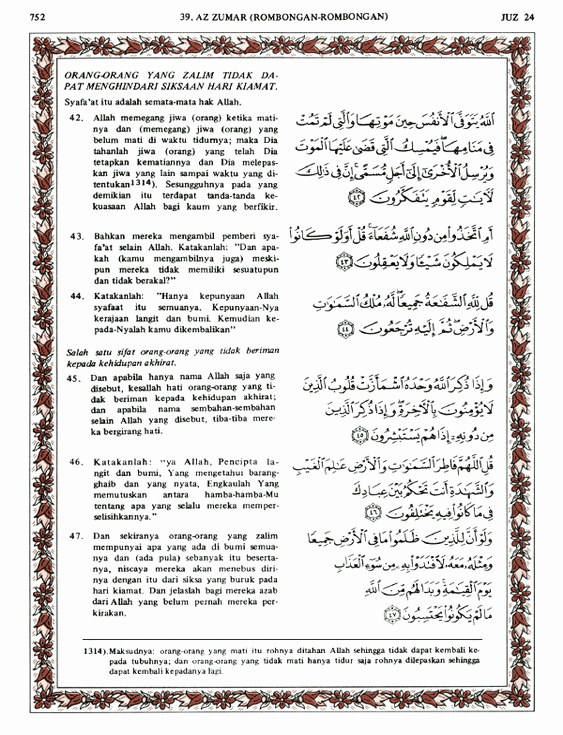 752
39. AZ ZUMAR (ROMBONGAN-ROMBONGAN)
JUZ 24
ORANG-ORANG YANG ZALIM TIDAK DA-
PAT MENGHINDARI SIKSAAN HARI KIAMAT.
Syafa'at itu adalah semata-mata hak Allah.
42. Allah memegang jiwa (orang) ketika mati-
nya dan (memegang) jiwa (orang) yang
belum mati di waktu tidurnya; maka Dia
tahanlah jiwa (orang) yang telah Dia
tetapkan kematiannya dan Dia melepas-
kan jiwa yang lain sampai waktu yang di-
tentukan1314). Sesungguhnya pada yang
demikian itu terdapat tanda-tanda ke-
kuasaan Allah bagi kaum yang berfikir.
اللَّهُ يَتَوَفَّى الْأَنفُسَ حِينَ مَوْتِهَا وَالَّتِي لَمْ تَمُتْ
فِي مَنَامِهَا فَيُمْسِكُ الَّتِي قَضَى عَلَيْهَا الْمَوْتَ
وَيُرْسِلُ الْأُخْرَى إِلَى أَجَلٍ مُّسَمًّى إِنَّ فِي ذَلِكَ
لَآيَاتٍ لِّقَوْمٍ يَتَفَكَّرُونَ ٤٢
43. Bahkan mereka mengambil pemberi sya-
fa'at selain Allah. Katakanlah: "Dan apa-
kah (kamu mengambilnya juga) meski-
pun mereka tidak memiliki sesuatupun
dan tidak berakal?"
أَمِ اتَّخَذُوا مِن دُونِ اللَّهِ شُفَعَاءَ قُلْ أَوَلَوْ كَانُوا
لَا يَمْلِكُونَ شَيْئًا وَلَا يَعْقِلُونَ ٤٣
44. Katakanlah: "Hanya kepunyaan Allah
syafaat itu semuanya. Kepunyaan-Nya
kerajaan langit dan bumi. Kemudian ke-
pada-Nyalah kamu dikembalikan"
قُل لِّلَّهِ الشَّفَاعَةُ جَمِيعًا لَّهُ مُلْكُ السَّمَاوَاتِ
وَالْأَرْضِ ثُمَّ إِلَيْهِ تُرْجَعُونَ ٤٤
Salah satu sifat orang-orang yang tidak beriman
kepada kehidupan akhirat.
45. Dan apabila hanya nama Allah saja yang
disebut, kesallah hati orang-orang yang ti-
dak beriman kepada kehidupan akhirat;
dan apabila nama sembahan-sembahan
selain Allah yang disebut, tiba-tiba mere-
ka bergirang hati.
وَإِذَا ذُكِرَ اللَّهُ وَحْدَهُ اشْمَأَزَّتْ قُلُوبُ الَّذِينَ
لَا يُؤْمِنُونَ بِالْآخِرَةِ وَإِذَا ذُكِرَ الَّذِينَ
مِن دُونِهِ إِذَا هُمْ يَسْتَبْشِرُونَ ٤٥
46. Katakanlah: "ya Allah, Pencipta la-
ngit dan bumi, Yang mengetahui barang-
ghaib dan yang nyata, Engkaulah Yang
memutuskan antara hamba-hamba-Mu
tentang apa yang selalu mereka memper-
selisihkannya."
قُلِ اللَّهُمَّ فَاطِرَ السَّمَاوَاتِ وَالْأَرْضِ عَالِمَ الْغَيْبِ
وَالشَّهَادَةِ أَنتَ تَحْكُمُ بَيْنَ عِبَادِكَ
فِي مَا كَانُوا فِيهِ يَخْتَلِفُونَ ٤٦
47. Dan sekiranya orang-orang yang zalim
mempunyai apa yang ada di bumi semua-
nya dan (ada pula) sebanyak itu beserta-
nya, niscaya mereka akan menebus diri-
nya dengan itu dari siksa yang buruk pada
hari kiamat. Dan jelaslah bagi mereka azab
dari Allah yang belum pernah mereka per-
kirakan.
وَلَوْ أَنَّ لِلَّذِينَ ظَلَمُوا مَا فِي الْأَرْضِ جَمِيعًا
وَمِثْلَهُ مَعَهُ لَافْتَدَوْا بِهِ مِن سُوءِ الْعَذَابِ
يَوْمَ الْقِيَامَةِ وَبَدَا لَهُم مِّنَ اللَّهِ
مَا لَمْ يَكُونُوا يَحْتَسِبُونَ ٤٧
1314).Maksudnya: orang-orang yang mati itu rohnya ditahan Allah sehingga tidak dapat kembali ke-
pada tubuhnya; dan orang-orang yang tidak mati hanya tidur saja rohnya dilepaskan sehingga
dapat kembali kepadanya lagi.